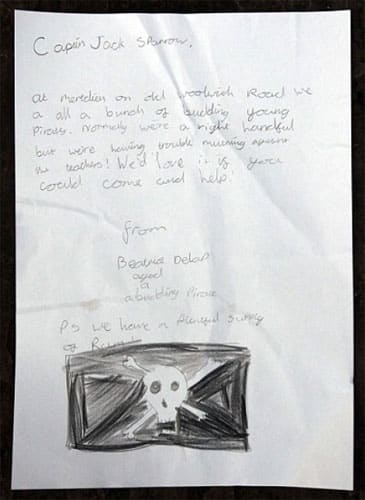 Captin Jack Sparrow,
At meredien on old woolwich Road we
a all a bunch of budding young
Pirats. Normaly we're a right handful
but we're having trouble mutining against
the teachers! We'd love it if you
could come and help!
from
Beatrice Delap
aged
9
a budding Pirate
PS we have a plentiful Supply
of